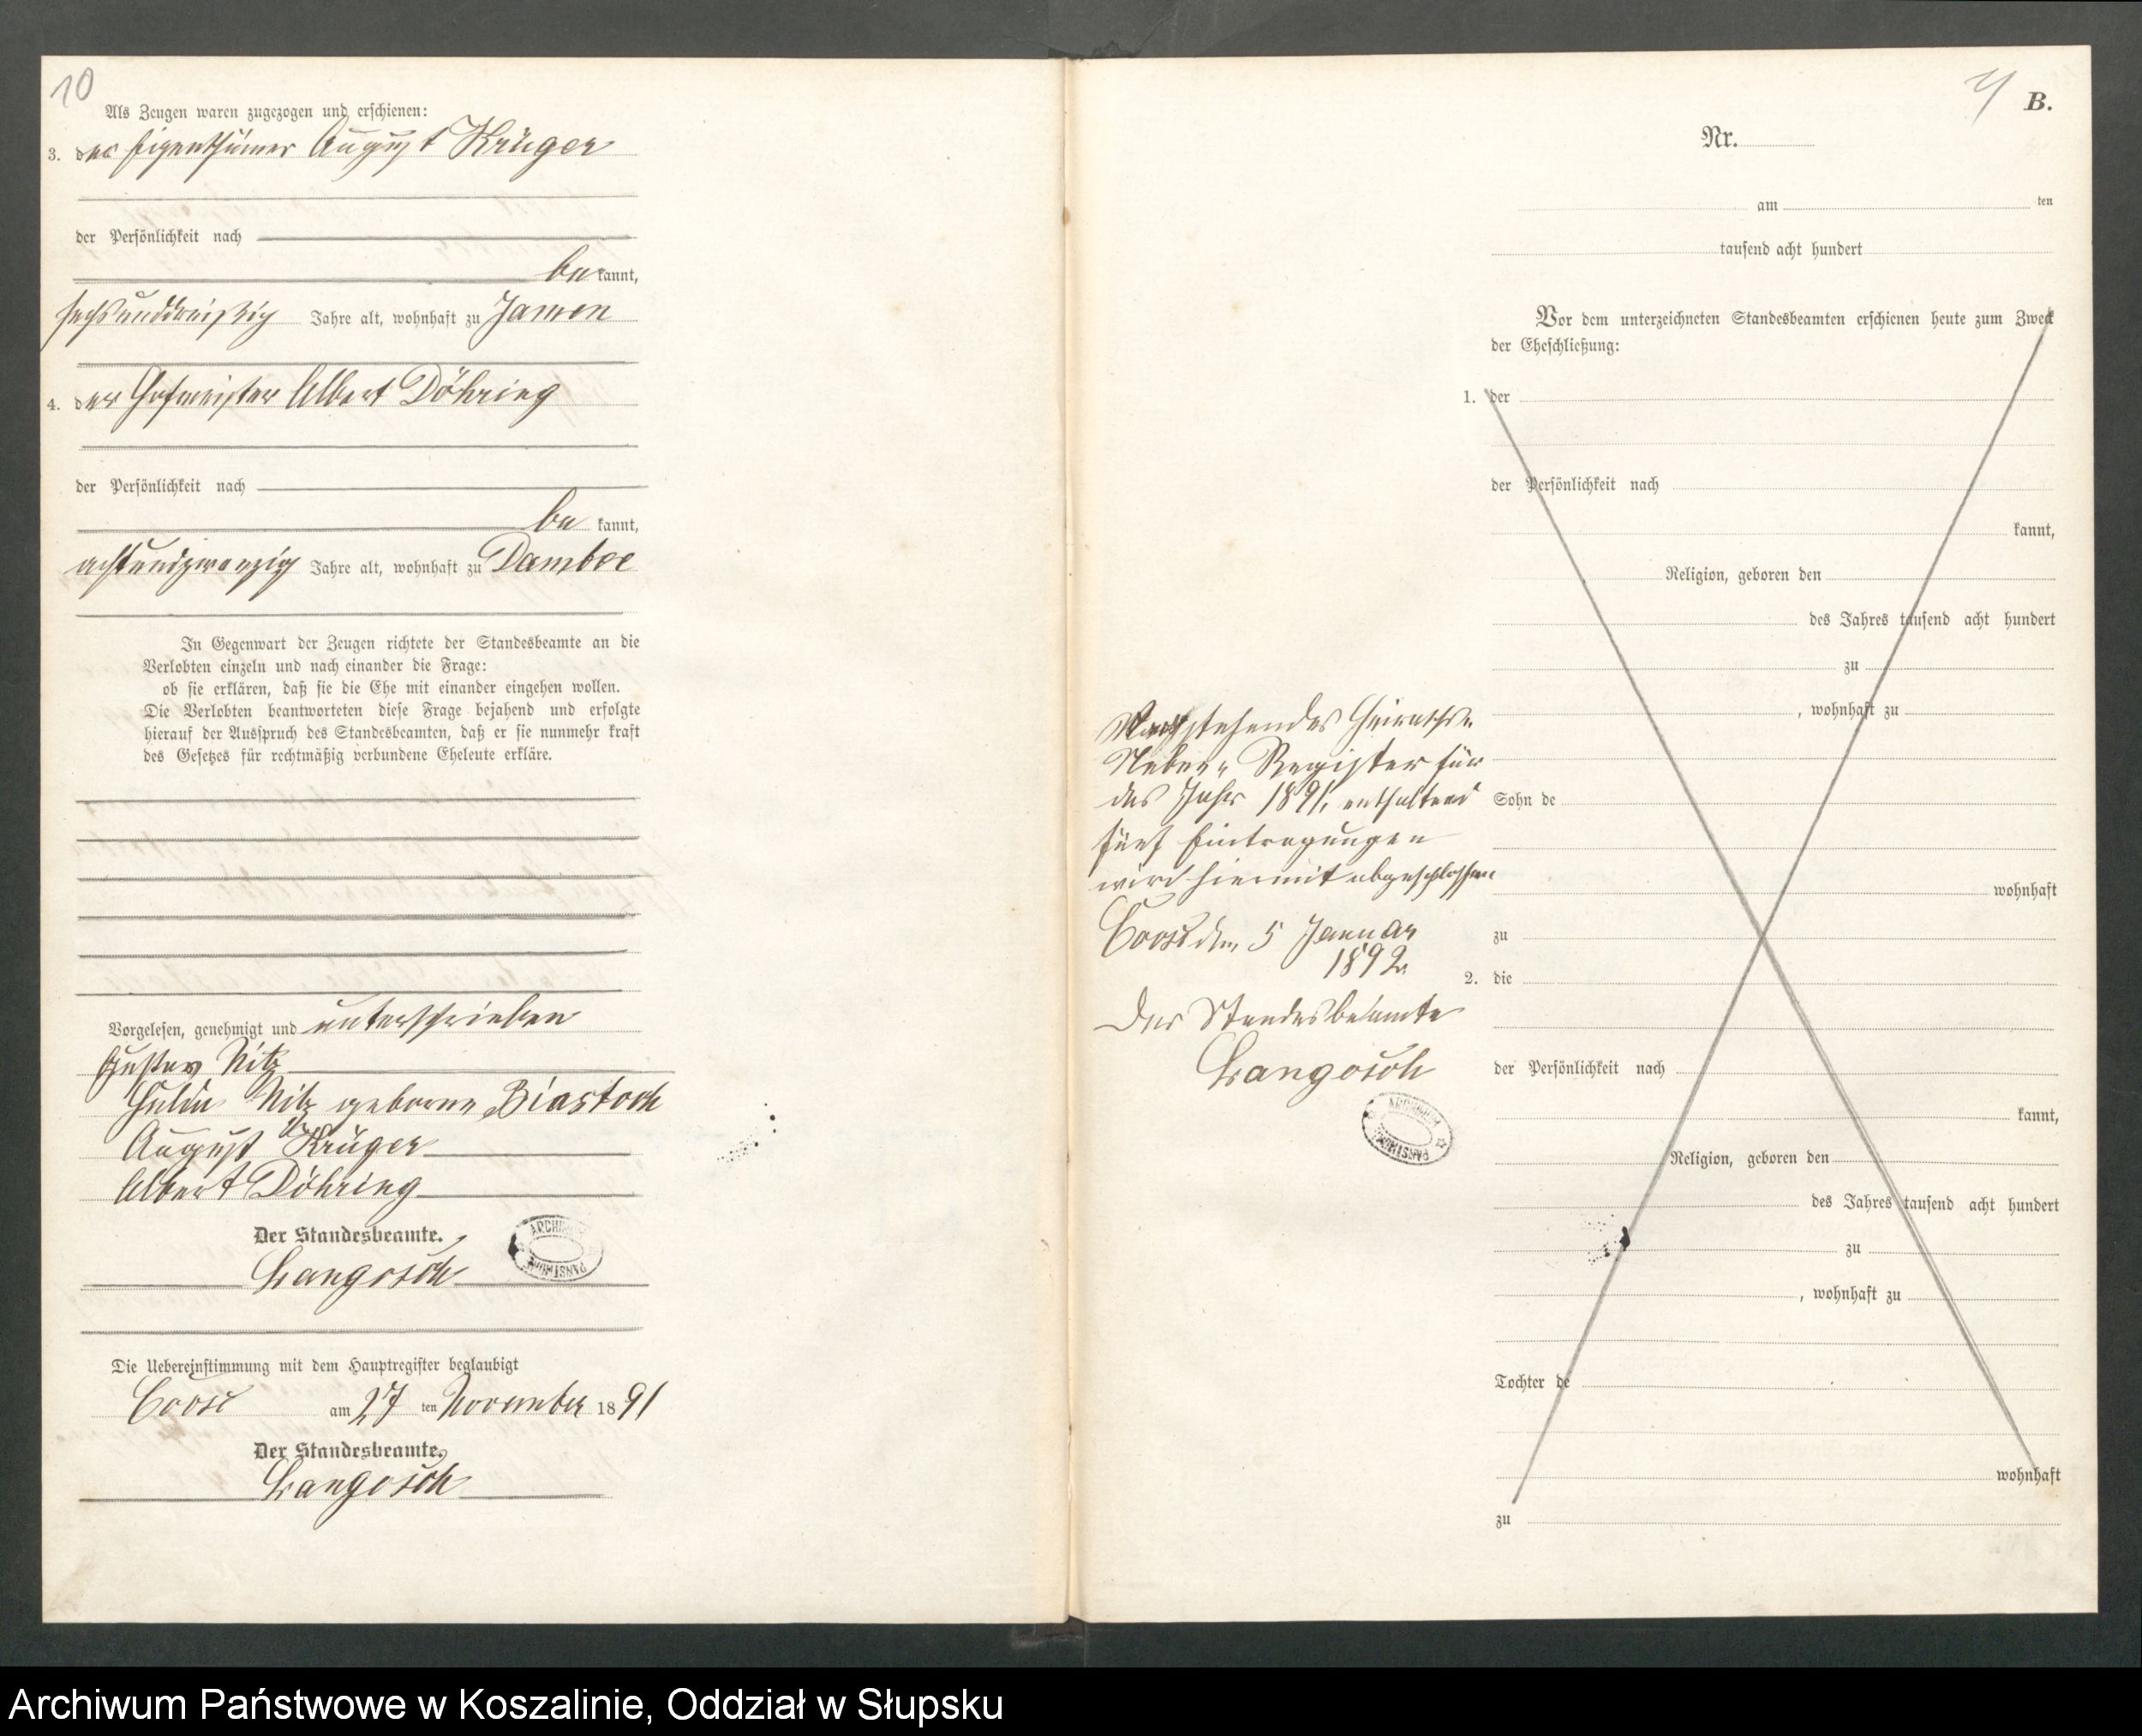 10
Als Zeugen waren zugezogen und erschienen:
3. der Eigenthümer August Krüger
der Persönlichkeit nach
be kannt,
sechsunddreißig Jahre alt, wohnhaft zu Jamen
4. der Hofmeister Albert Döhring
der Persönlichkeit nach
be kannt,
achtundzwanzig Jahre alt, wohnhaft zu Dambee
In Gegenwart der Zeugen richtete der Standesbeamte an die
Verlobten einzeln und nach einander die Frage:
ob sie erklären, daß sie die Ehe mit einander eingehen wollen.
Die Verlobten beantworteten diese Frage bejahend und erfolgte
hierauf der Ausspruch des Standesbeamten, daß er sie nunmehr kraft
des Gesetzes für rechtmäßig verbundene Eheleute erkläre.
Vorgelesen, genehmigt und unterschrieben
Gustav Nitz
Nitz geborne Biastoch
August Krüger
Albert Döhring
Der Standesbeamte.
Langosch
Die Uebereinstimmung mit dem Hauptregister beglaubigt
Coose am 27 ten November 1891
Der Standesbeamte.
Langosch
B.
Nr.
am ten
tausend acht hundert
Vor dem unterzeichneten Standesbeamten erschienen heute zum Zweck
der Eheschließung:
1. der
der Persönlichkeit nach
kannt,
Religion, geboren den
des Jahres tausend acht hundert
zu
, wohnhaft zu
Sohn de
wohnhaft
zu
2. die
der Persönlichkeit nach
kannt,
Religion, geboren den
des Jahres tausend acht hundert
zu
, wohnhaft zu
Tochter de
wohnhaft
zu
stehendes Heiraths-
Neben-Register für
das Jahr 1891, enthaltend
fünf Eintragungen
wird hiermit abgeschlossen
Coose den 5 Januar
1892.
Der Standesbeamte
Langosch
Archiwum Państwowe w Koszalinie, Oddział w Słupsku